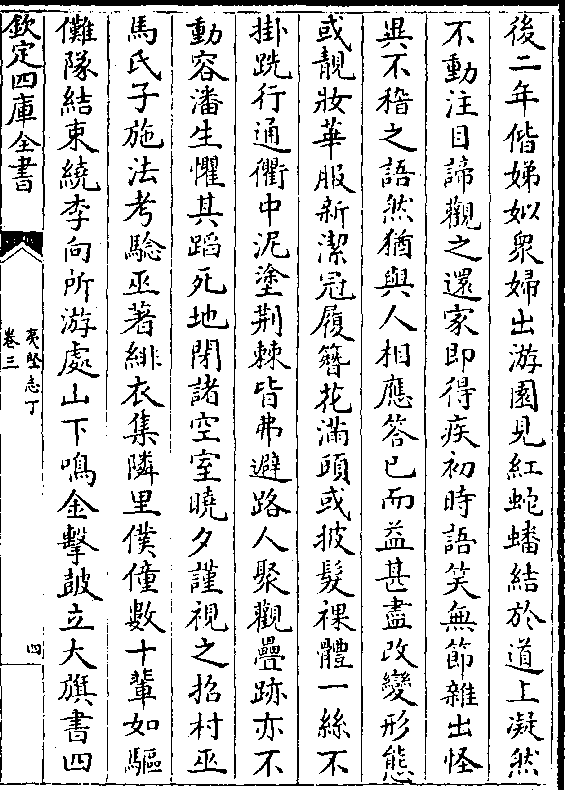 後二年偕娣姒衆婦出游園見紅蛇蟠結於道上凝然
不動注目諦觀之還家即得疾初時語笑無節雜出怪
異不稽之語然猶與人相應答已而益甚盡改變形態
或靚妝華服新潔冠履簪花滿頭或披髮裸體一絲不
掛跣行通衢中泥塗荆棘皆弗避路人聚觀疊跡亦不
動容潘生懼其蹈死地閉諸空室曉夕謹視之招村巫
馬氏子施法考驗巫著緋衣集隣里僕僮數十輩如驅
儺隊結束繞李向所游處山下鳴金擊鼓立大旗書四
欽定四庫全書
夷堅志丁
卷三
四